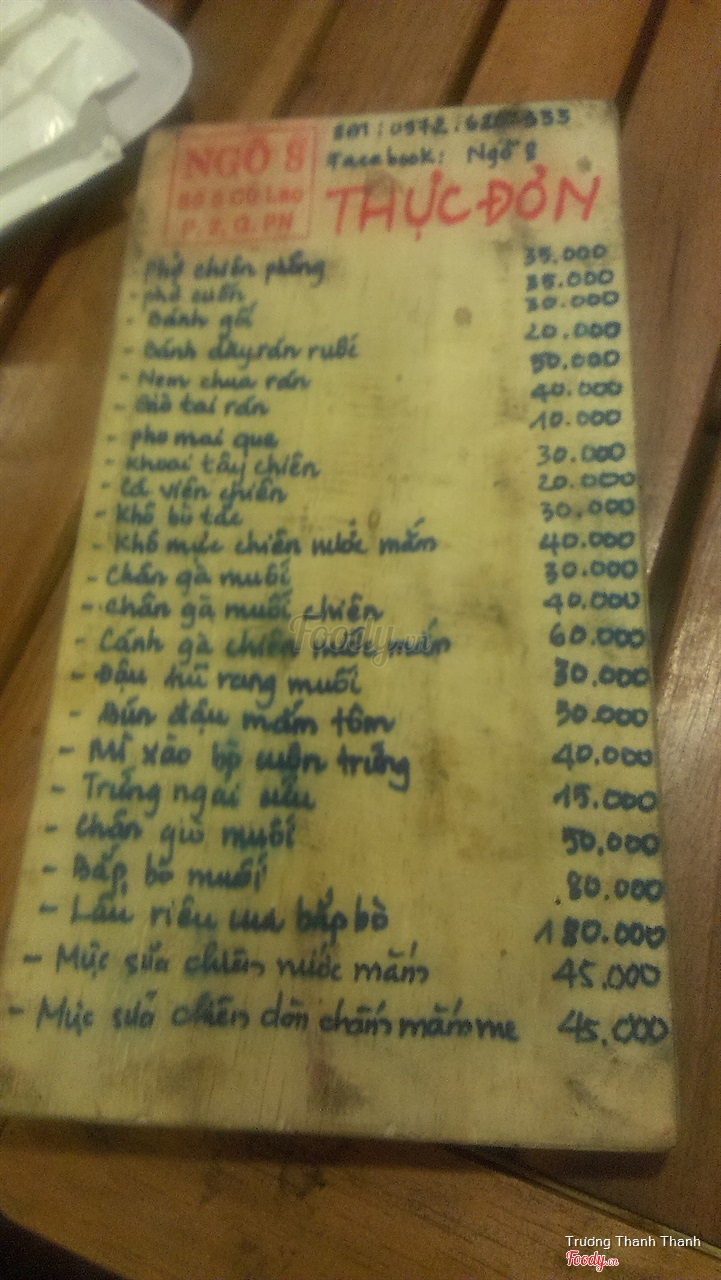 NGÕ 8
SỐ 8 CÙ LAO
P. 2, Q. PN
Facebook: Ngõ 8
THỰC ĐƠN
- Phở chiên phồng 35.000
- phở cuốn 35.000
- Bánh gối 30.000
- Bánh dày rán ruốc 20.000
- Nem chua rán 50.000
- Giò tai rán 40.000
- pho mai que 10.000
- Khoai tây chiên 30.000
- Cá viên chiên 20.000
- Khô bò tắc 30.000
- Khô mực chiên nước mắm 40.000
- Chân gà muối 30.000
- Chân gà muối chiên 40.000
- Cánh gà chiên nước mắm 60.000
- Đậu hũ rang muối 30.000
- Bún đậu mắm tôm 50.000
- Mì xào bò cuộn trứng 40.000
- Trứng ngải cứu 15.000
- Chân giò muối 50.000
- Bắp bò muối 80.000
- Lẩu riêu cua bắp bò 180.000
- Mực sữa chiên nước mắm 45.000
- Mực sữa chiên dòn chấm mắm me 45.000
Foody.vn
Trương Thanh Thanh
Foody.vn